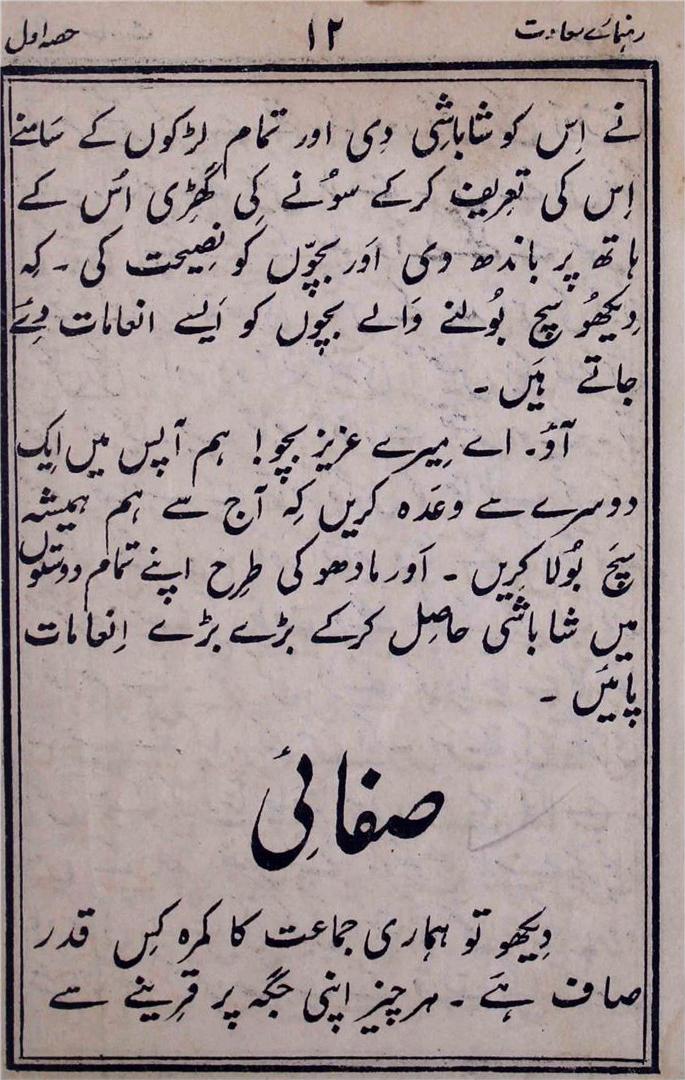 رہنمائے سعادت ۱۲ حصہ اول
نے اِس کو شاباشِی دِی اور تمام لڑکوں کے سَامنے
اِس کی تعرِیف کرکے سوُنے کِی گھَڑِی اُس کے
ہاتھ پر باندھ دی اَور بچّوں کو نصِیحت کی۔ کِہ
دِیکھُو سچ بُولنے وَالے بچّوں کو اَیسے انعامات دِئے
جاتے ہَیں۔
آؤ۔ اے مِیرے عزیز بچّو! ہم آپس میں اِیک
دوسرے سے وعَدہ کریں کِہ آج سے ہم ہمیشہ
سچَ بُولا کریں۔ اَور مادھو کی طرِح اپنے تمام دوستوں
میں شاباشی حاصِل کرکے بڑے بڑے اِنعامات
پائیَں۔
صفائِی
دِیکھو تو ہماری جماعت کا کمرہ کِس قدر
صاف ہَے۔ ہر چیز اپنی جگہ پر قرِینے سے